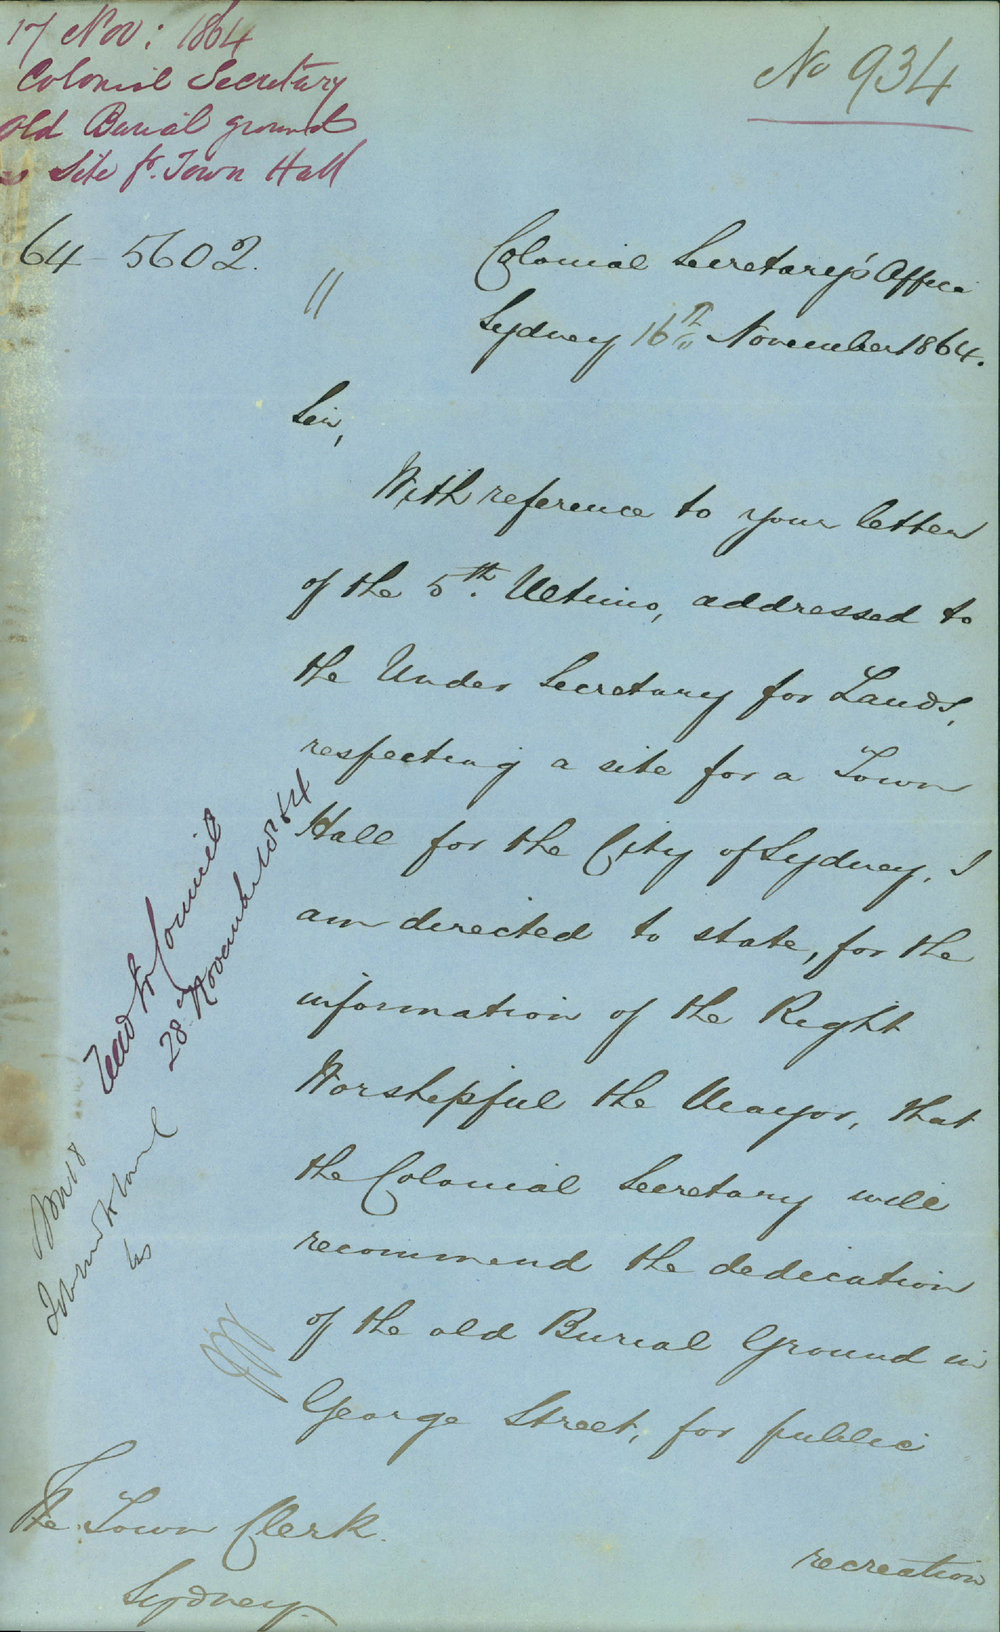 17 Nov: 1864
Colonial Secretary
Old Burial ground
as Site fr. Town Hall
No 934
64-5602.
Colonial Secretary's Office
Sydney 16th November 1864.
Sir,
With reference to your letter
of the 5th. Ultimo, addressed to
the Under Secretary for Lands,
respecting a site for a Town
Hall for the City of Sydney, I
am directed to state, for the
information of the Right
Worshipful the Mayor, that
the Colonial Secretary will
recommend the dedication
of the old Burial Ground in
George Street, for public
recreation
The Town Clerk.
Sydney.
Read to Council
28th November 1864
Nov 18